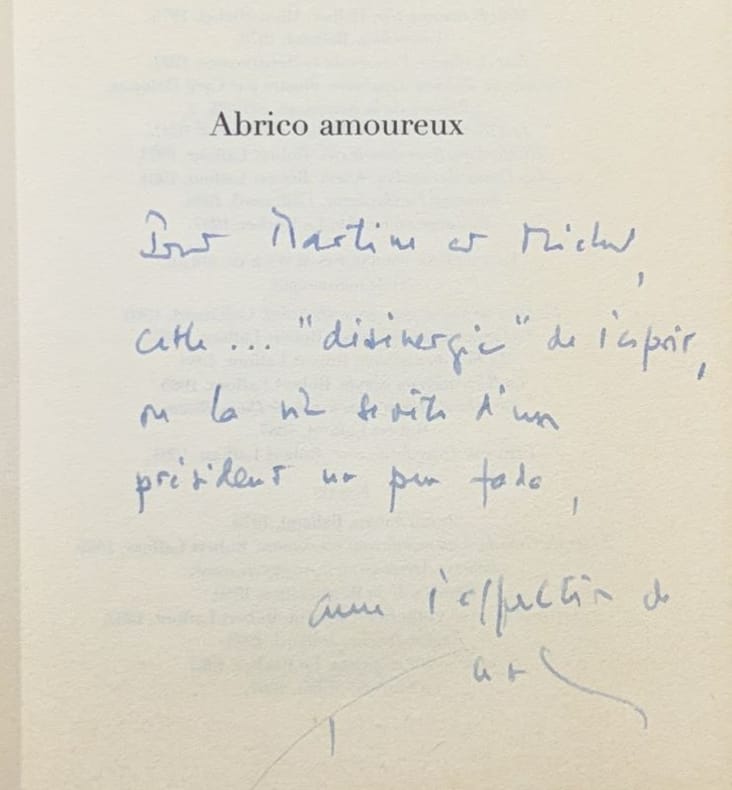 Abrico amoureux
Pour Martine et Michel,
cette ... " " de l'espoir,
ou la vie secrète d'un
président un peu fada,
avec l'affection de